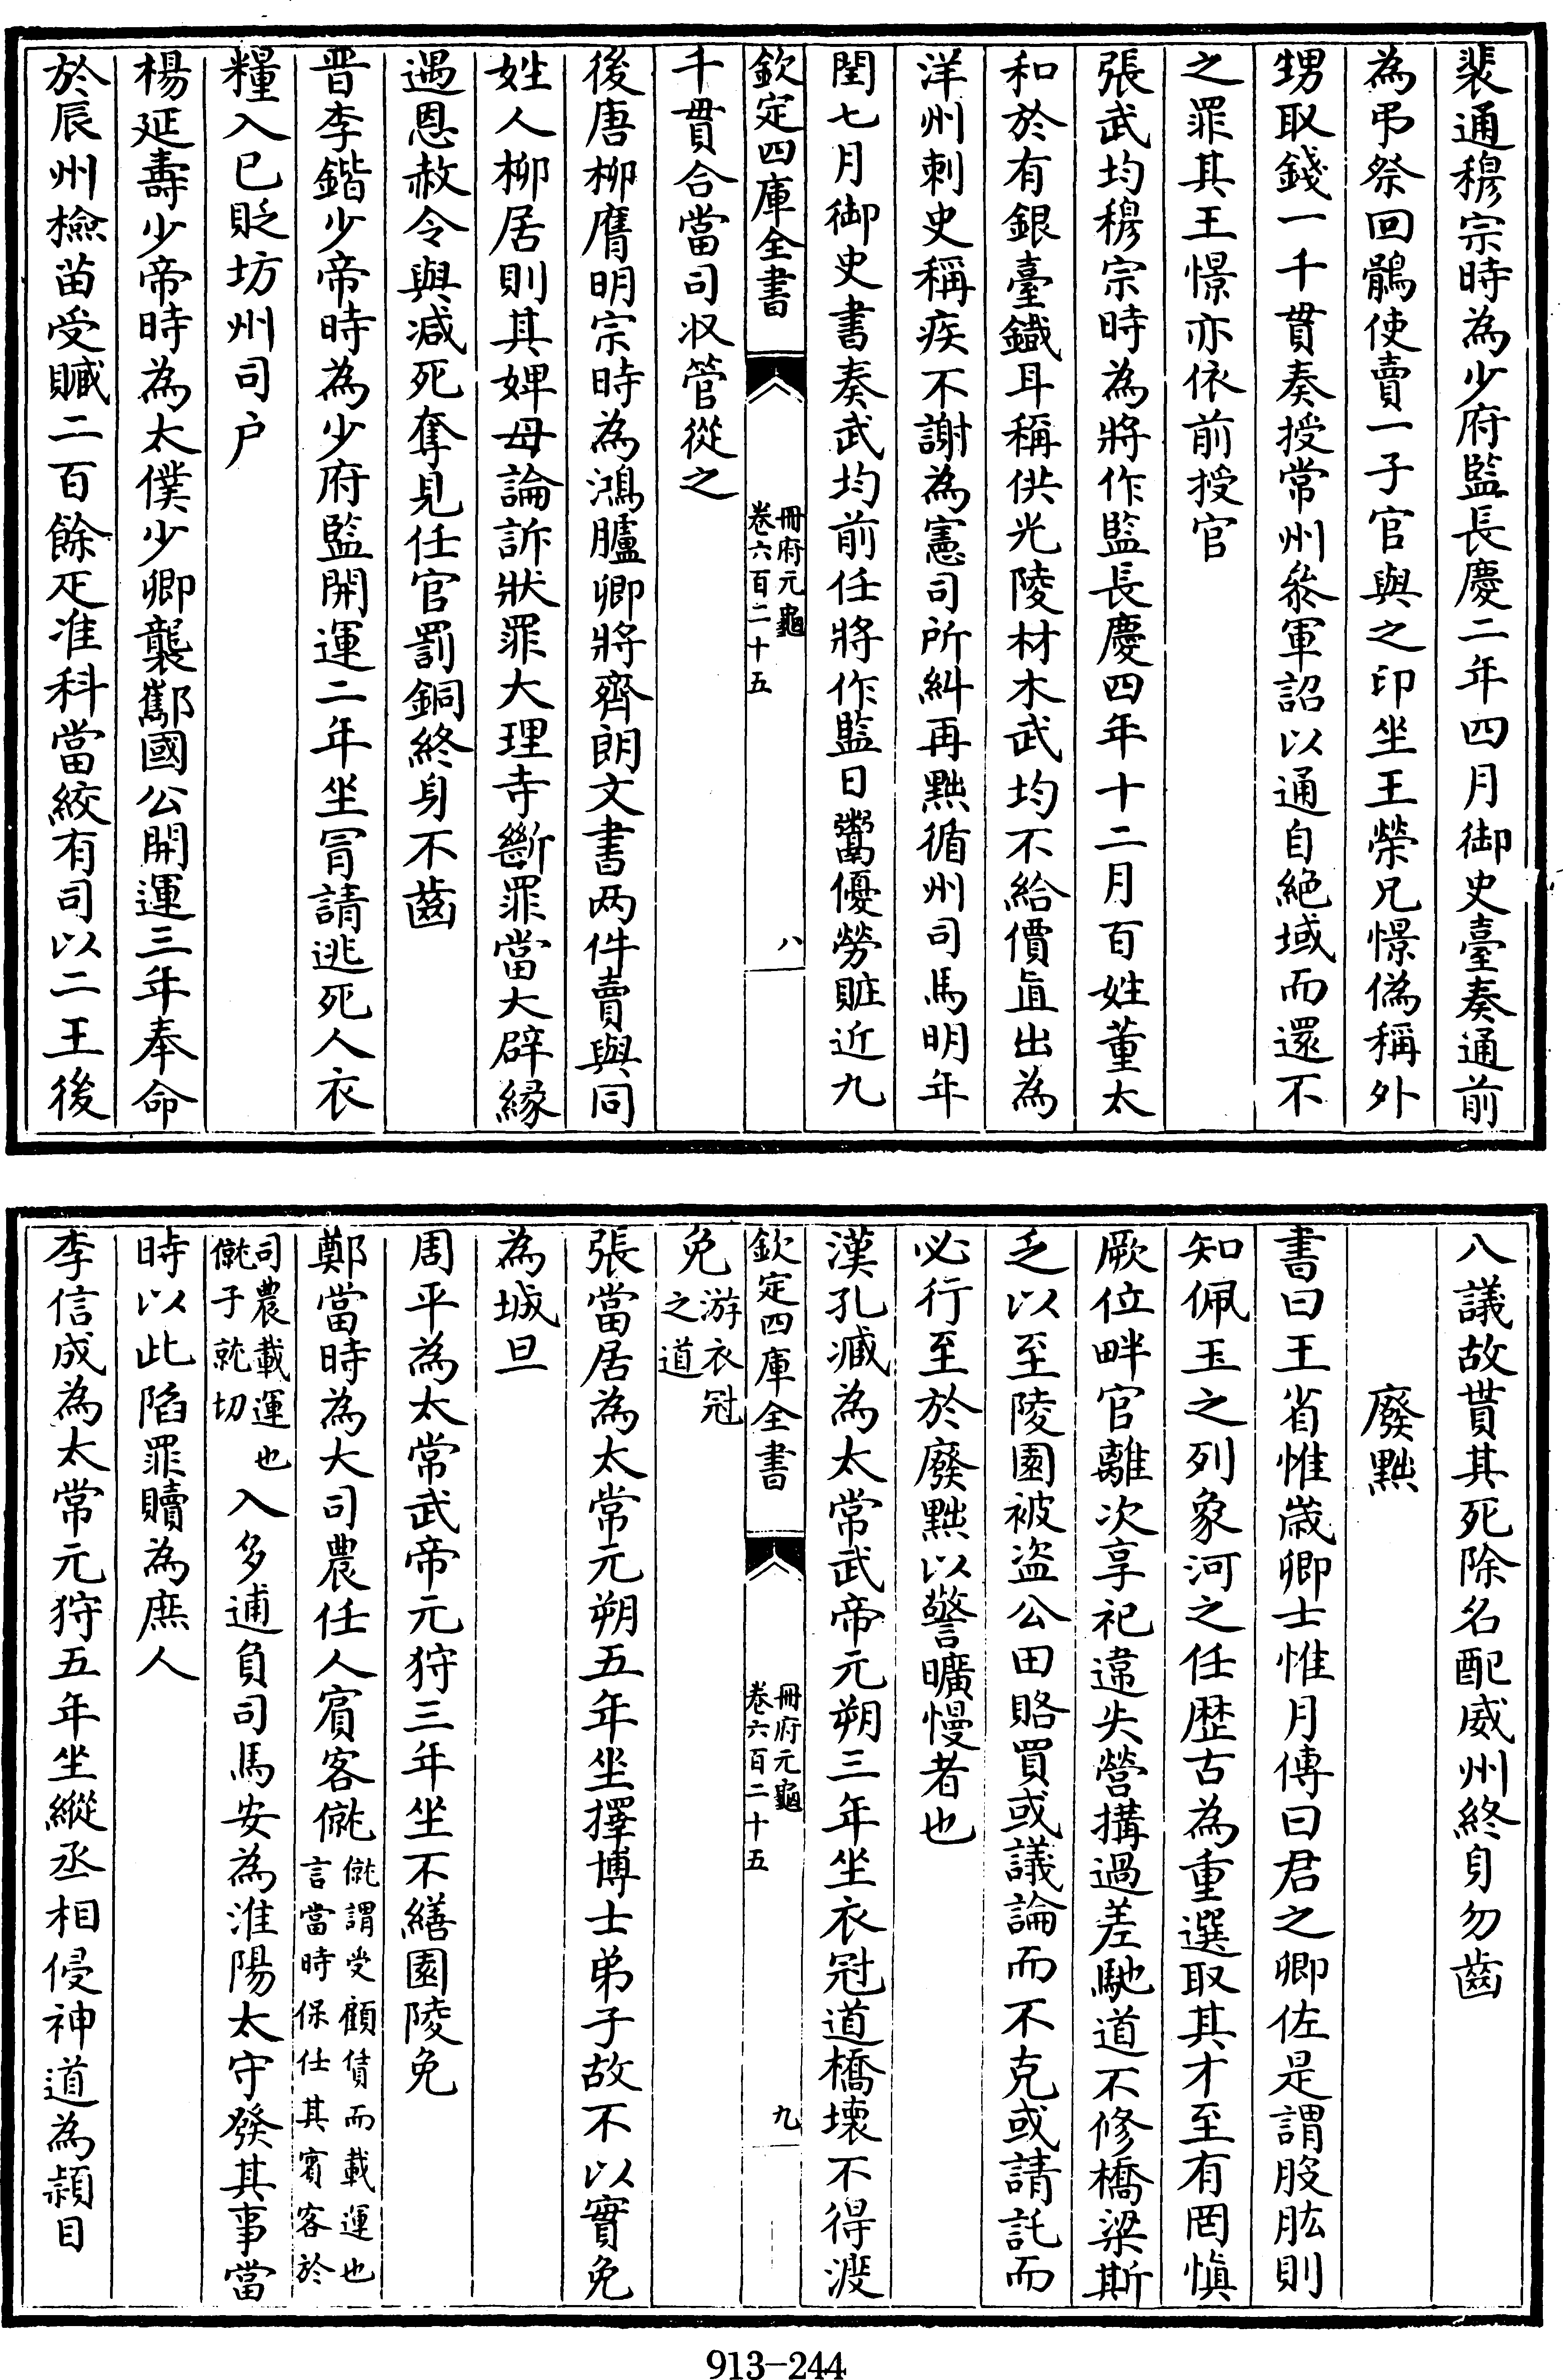 裴通穆宗時為少府監長慶二年四月御史臺奏通前
為弔祭回鶻使賣一子官與之印坐王榮兄憬偽稱外
甥取錢一千貫奏授常州叅軍詔以通自絶域而還不
之罪其王憬亦依前授官
張武均穆宗時為將作監長慶四年十二月百姓董太
和於有銀臺鐵耳稱供光陵材木武均不給價直出為
洋州刺史稱疾不謝為憲司所糾再黜循州司馬明年
閏七月御史書奏武均前任將作監日鬻優勞賍近九
欽定四庫全書
冊府元龜
卷六百二十五
八
千貫合當司收管從之
後唐柳膺明宗時為鴻臚卿將齊朗文書两件賣與同
姓人柳居則其婢母論訴狀罪大理寺斷罪當大辟縁
遇恩赦令與减死奪見任官罰銅終身不齒
晋李鍇少帝時為少府監開運二年坐冐請逃死人衣
糧入已貶坊州司户
楊延壽少帝時為太僕少卿襲酅國公開運三年奉命
於辰州檢苗受贓二百餘疋准科當絞有司以二王後
八議故貰其死除名配威州終身勿齒
廢黜
書曰王省惟嵗卿士惟月傳曰君之卿佐是謂股肱則
知佩玉之列象河之任歴古為重選取其才至有罔愼
厥位畔官離次享祀違失營搆過差馳道不修橋梁斯
乏以至陵園被盗公田賂買或議論而不克或請託而
必行至於廢黜以警曠慢者也
漢孔臧為太常武帝元朔三年坐衣冠道橋壊不得渡
欽定四庫全書
冊府元龜
卷六百二十五
九
免游衣冠之道
張當居為太常元朔五年坐擇博士弟子故不以實免
為城旦
周平為太常武帝元狩三年坐不繕園陵免
鄭當時為大司農任人賔客僦僦謂受顧賃而載運也言當時保任其賓客於
司農載運也僦子就切入多逋負司馬安為淮陽太守發其事當
時以此陷罪贖為庶人
李信成為太常元狩五年坐縱丞相侵神道為頴目
913-244